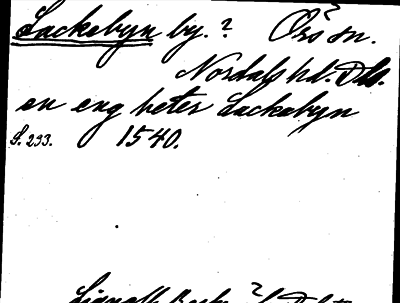 Lackabyn by.? Örs sn.
Nordals hd. Dls.
en eng heter Lackabyn
S. 233. 1540.